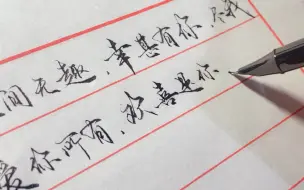 间无趣，幸甚有你，不我
爱你所有，欢喜是你